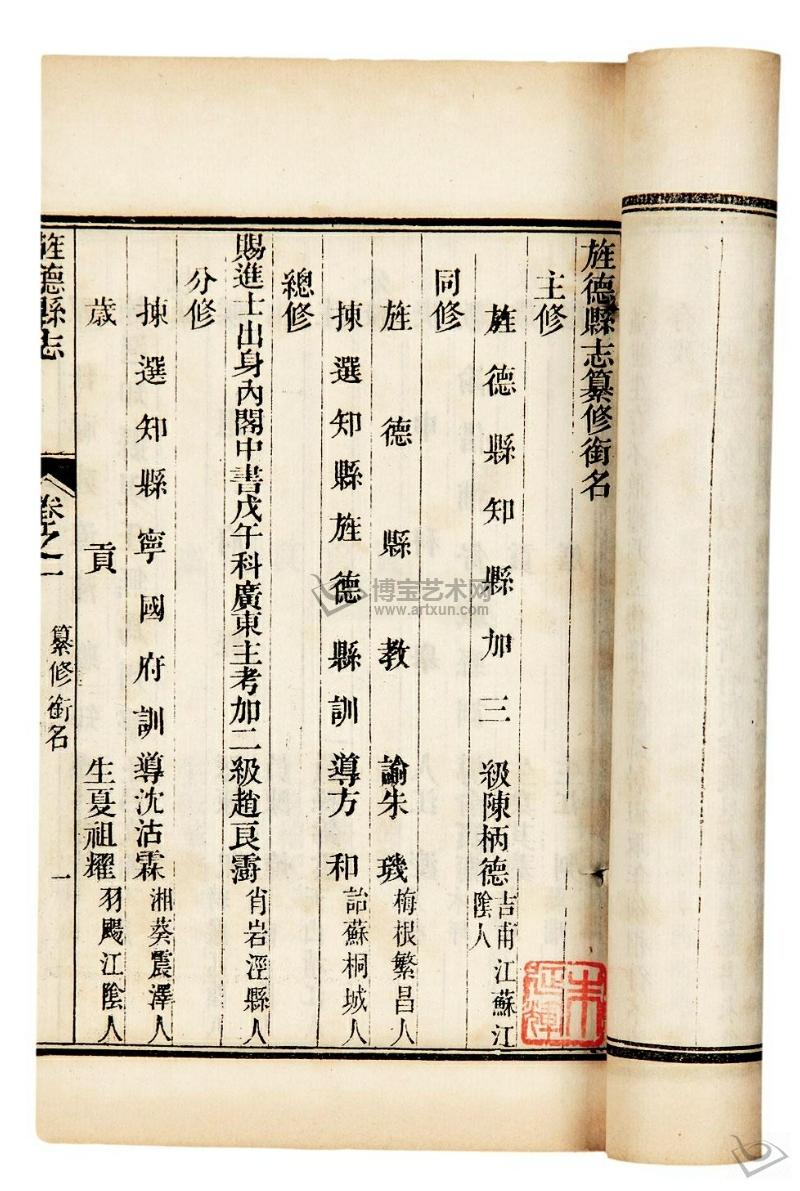 旌德縣志纂修銜名
主修
旌德縣知縣加三級陳柄德吉甫江蘇江陰人
同修
旌德縣教諭朱璣梅根繁昌人
揀選知縣旌德縣訓導方和詒蘇桐城人
總修
賜進士出身內閣中書戊午科廣東主考加二級趙良澍肖岩涇縣人
分修
揀選知縣寧國府訓導沈沽霖湘葵震澤人
歲貢生夏祖耀羽颺江陰人
旌德縣志
卷之一
纂修銜名
一
博宝艺术网
www.artxun.com